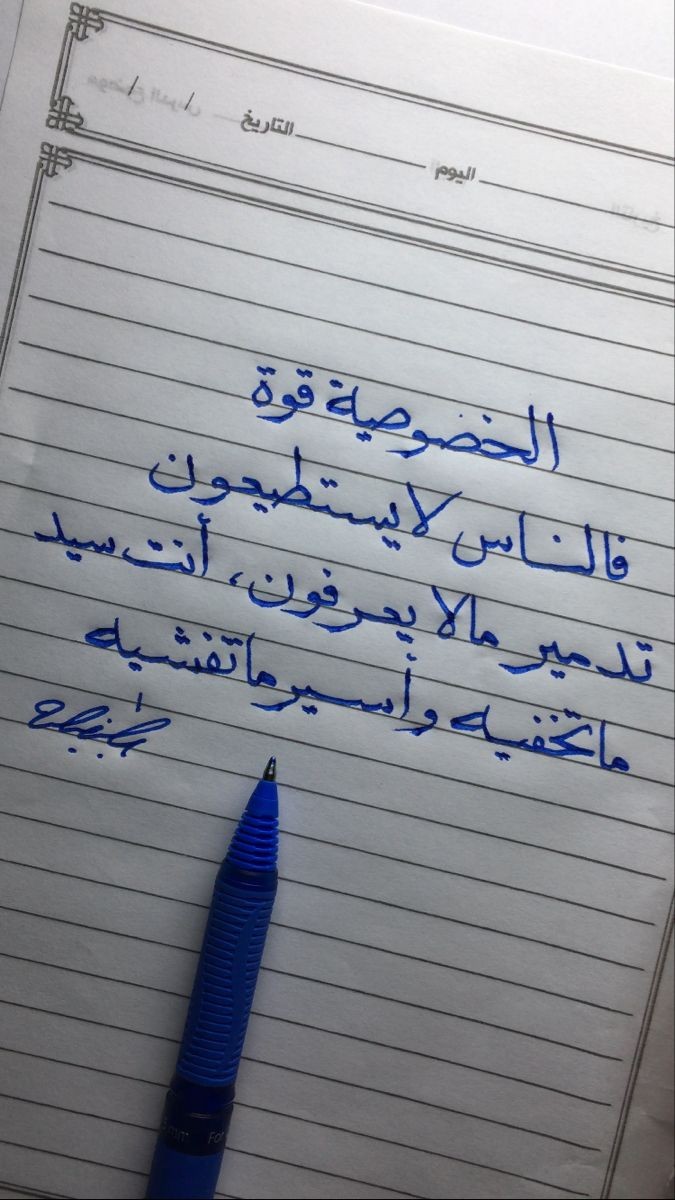 اليوم التاريخ / /
الخصوصية قوة
فالناس لا يستطيعون
تدمير مالا يعرفون، أنت سيد
ما تخفيه وأسير ما تفشيه